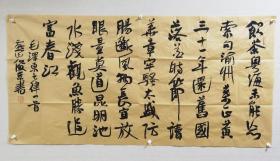 飲茶粤海未能忘
索句渝州葉正黃
三十一年還舊國
落花時節讀
華章牢騷太盛防
腸斷風物長宜放
眼量莫道昆明池
水淺觀魚勝過
富春江
毛澤東七律一首